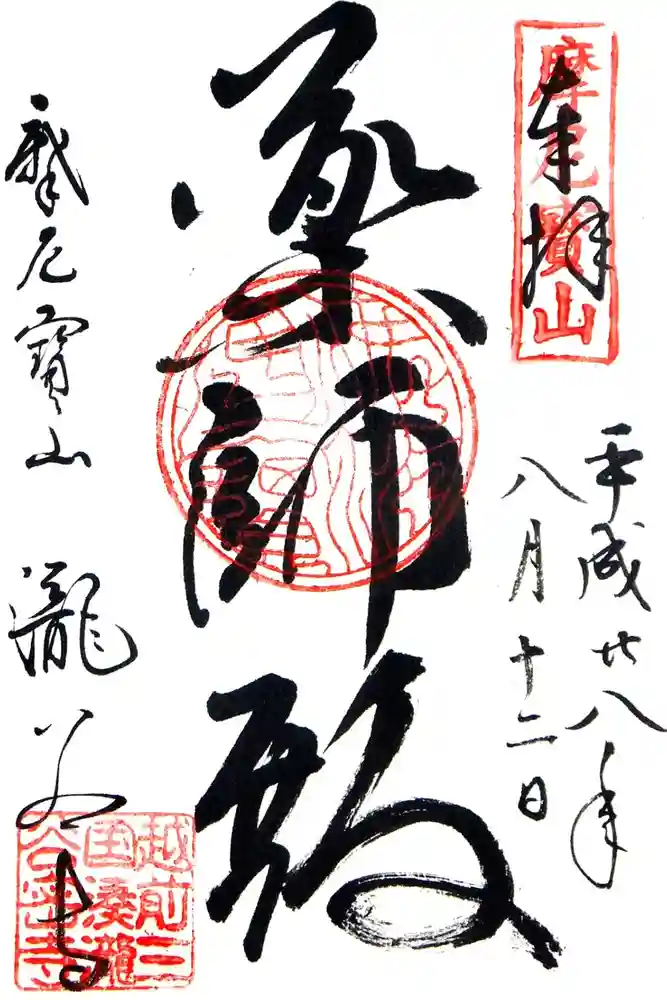 摩尼寶山
奉拝
平成廿八年
八月十二日
薬師殿
摩尼寶山 瀧谷寺
越前三
国湊瀧